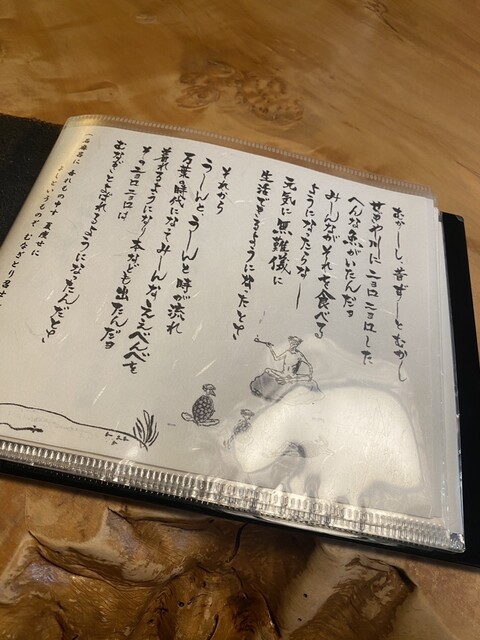 むかーし、昔ずーとむかし
せかやかにニョロニョロした
へんな魚がいたんだョ
みーんながそれを食べる
ようになったらなー
元気に無難儀に
生活できるようになったとさ
それから
うーんと、うーんと時が流れ
万葉時代になってみーんなええべべを
着れるようになり本なども出たんだョ
そのニョロニョロは
むなぎとよばれるようになったんだとさ
石麻呂に 吾れもの申す 夏痩せに
よしというものぞ むなぎとり